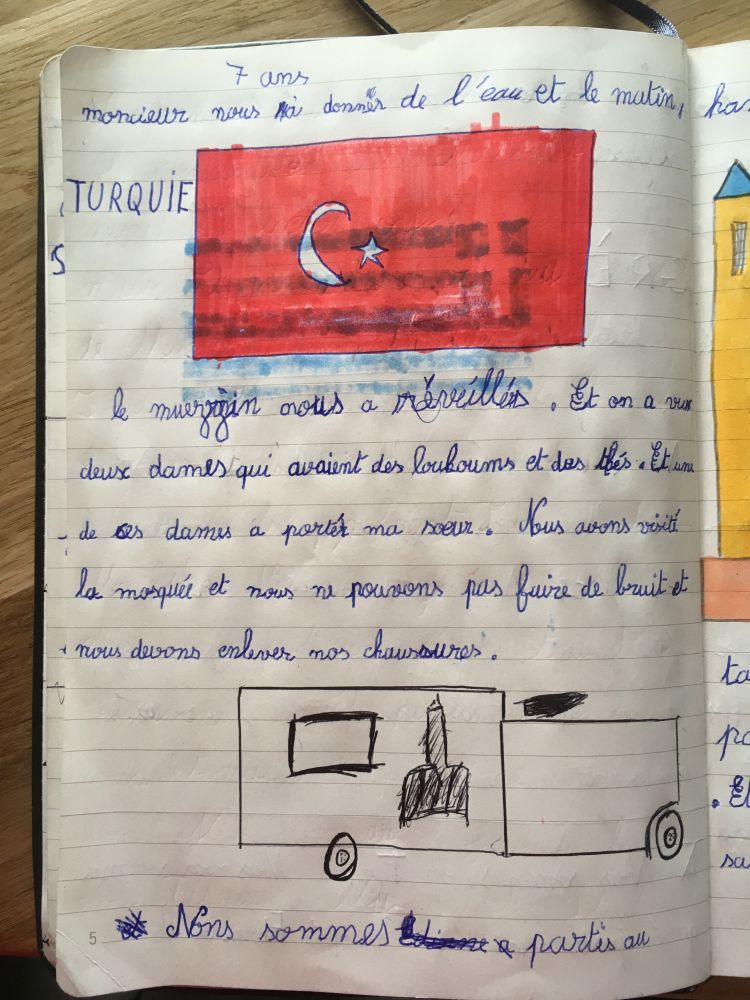 7 ans
moncieur nous à donnér de l'eau et le matin,
TURQUIE
le muezzin nous a réveillés. Et on a vux
deux dames qui avaient des loukoums et des thés. Et une
de ces dames a portér ma soeur. Nous avons visité
la mosquée et nous ne pouvons pas faire de bruit et
nous devons enlever nos chaussures.
5 Nous sommes partis au
ta
po
. Et
sa